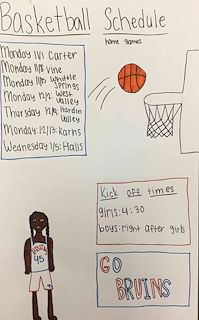 Basketball Schedule
home games
Monday 11/1 Carter
Monday 11/8: Vine
Monday 11/15 Whittle
Springs
Monday 12/2: West
Valley
Thursday 12/9: hardin
Valley
Monday: 12/13: Karns
Wednesday 1/5: Halls
Kick off times
girls: 4:30
boys: right after girls
45
GO
BRUINS